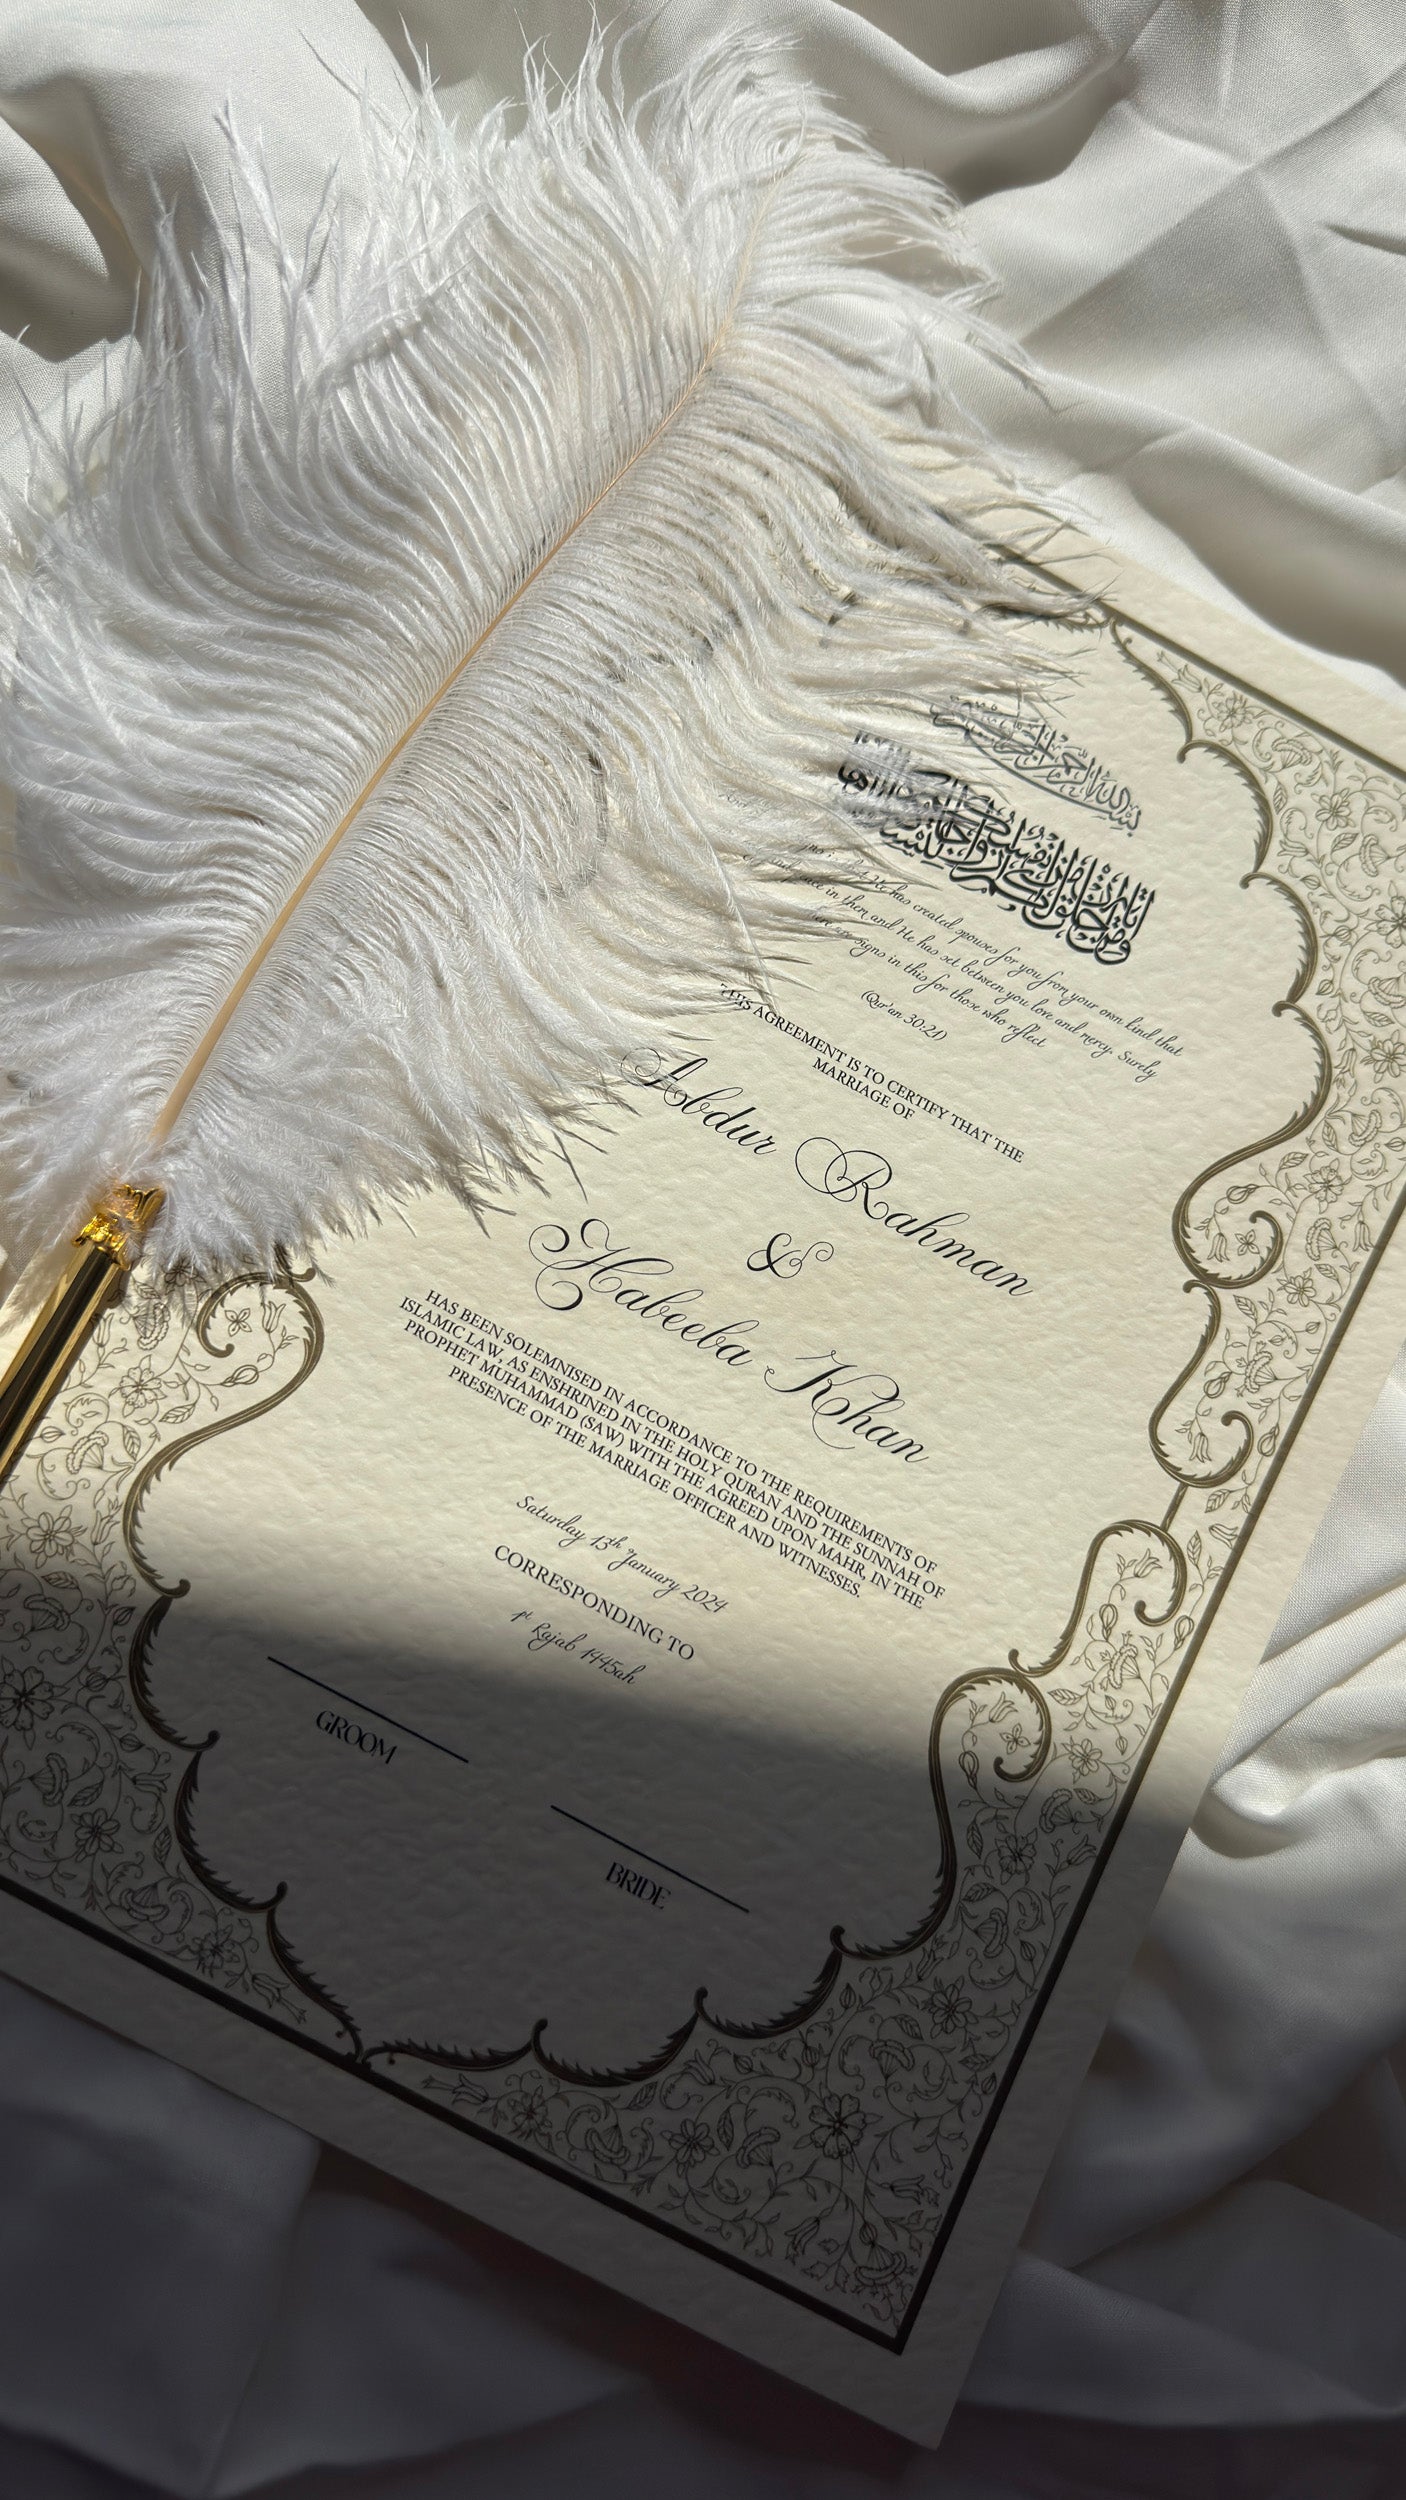 بِسْمِ اللَّهِ الرَّحْمَٰنِ الرَّحِيمِ
وَمِنْ آيَاتِهِ أَنْ خَلَقَ لَكُم مِّنْ أَنفُسِكُمْ أَزْوَاجًا لِّتَسْكُنُوا إِلَيْهَا
He has created spouses for you from your own kind that
in them and He has set between you love and mercy. Surely
are signs in this for those who reflect
(Qur'an 30:21)
THIS AGREEMENT IS TO CERTIFY THAT THE
MARRIAGE OF
Abdur Rahman
&
Habeeba Khan
HAS BEEN SOLEMNISED IN ACCORDANCE TO THE REQUIREMENTS OF
ISLAMIC LAW, AS ENSHRINED IN THE HOLY QURAN AND THE SUNNAH OF
PROPHET MUHAMMAD (SAW) WITH THE AGREED UPON MAHR, IN THE
PRESENCE OF THE MARRIAGE OFFICER AND WITNESSES.
Saturday 13th January 2024
CORRESPONDING TO
1st Rajab 1445ah
GROOM
BRIDE